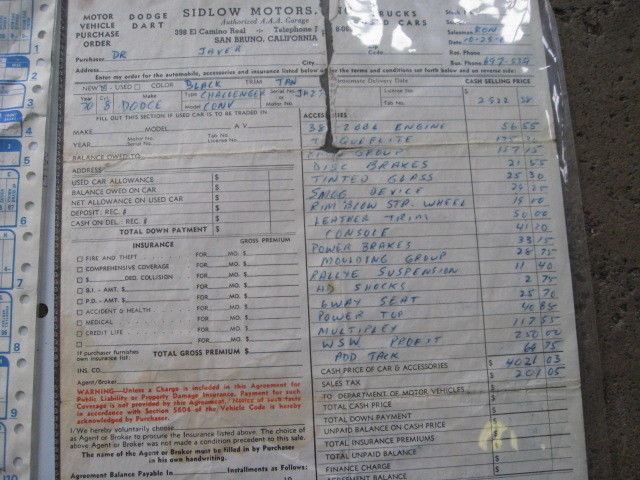 MOTOR DODGE SIDLOW MOTORS, TRUCKS
VEHICLE DART Authorized A.A.A. Garage USED CARS
PURCHASE 398 El Camino Real Telephone
ORDER SAN BRUNO, CALIFORNIA
Salesman RON
Date
Purchaser DR JAVER
Res. Phone
Address City Bus. Phone
Enter my order for the automobile, accessories and insurance listed below under the terms and conditions set forth below and on reverse side:
NEW USED COLOR BLACK TRIM TAN Approximate Delivery Date CASH SELLING PRICE
Year 70 Make DODGE Type CHALLENGER Model CONV Serial No. License No.
FILL OUT THIS SECTION IF USED CAR IS TO BE TRADED IN
MAKE MODEL A V
YEAR Motor No. Serial No. Tab No. License No.
BALANCE OWED TO
ADDRESS
USED CAR ALLOWANCE $
BALANCE OWED ON CAR $
NET ALLOWANCE ON USED CAR $
DEPOSIT: REC. # $
CASH ON DEL. REC. # $
TOTAL DOWN PAYMENT $
INSURANCE GROSS PREMIUM
FIRE AND THEFT FOR MO. $
COMPREHENSIVE COVERAGE FOR MO. $
$ DED. COLLISION FOR MO. $
B.I. - AMT. $ FOR MO. $
P.D. - AMT. $ FOR MO. $
ACCIDENT & HEALTH FOR MO. $
MEDICAL FOR MO. $
CREDIT LIFE FOR MO. $
FOR MO. $
If purchaser furnishes own insurance list: TOTAL GROSS PREMIUM $
INS. CO.
Agent/Broker
WARNING—Unless a Charge is included in this Agreement for
Public Liability or Property Damage Insurance, Payment for such
Coverage is not provided by this Agreement. Notice of such facts
in accordance with Section 5604 of the Vehicle Code is hereby
acknowledged by Purchaser.
I/We hereby voluntarily choose
as Agent or Broker to procure the insurance listed above. The choice of
above Agent or Broker was not made a condition precedent to this sale.
The name of the Agent or Broker must be filled in by Purchaser
in his own handwriting.
Agreement Balance Payable In Installments as Follows:
ACCESSORIES
ENGINE 56 55
TORQUEFLITE
GROUP 157 15
DISC BRAKES 21 55
TINTED GLASS 25 30
SMOG DEVICE
RIM BLOW STR. WHEEL 15 10
LEATHER TRIM 50 00
CONSOLE 41 20
POWER BRAKES 33 15
MOULDING GROUP 28 75
RALLYE SUSPENSION 11 40
HD SHOCKS 2 75
6WAY SEAT 25 70
POWER TOP 40 85
MULTIPLEX
WSW PROFIT 250 00
ADD TACK 60 75
CASH PRICE OF CAR & ACCESSORIES $ 4021 03
SALES TAX $ 201 05
TO DEPARTMENT OF MOTOR VEHICLES $
TOTAL CASH PRICE $
TOTAL DOWN PAYMENT $
UNPAID BALANCE ON CASH PRICE $
TOTAL INSURANCE PREMIUMS $
TOTAL UNPAID BALANCE $
FINANCE CHARGE $
AGREEMENT BALANCE